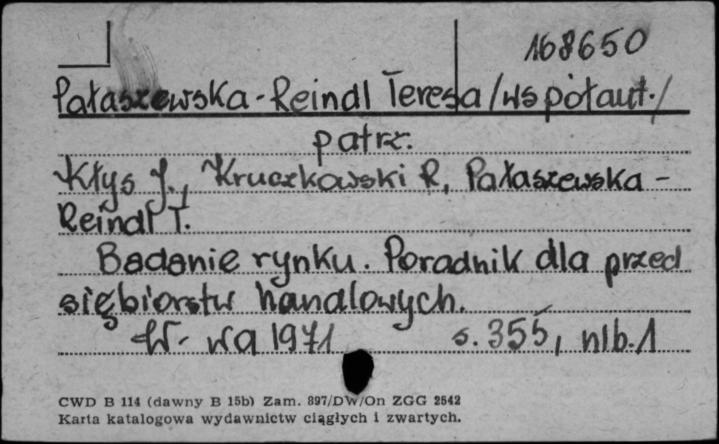 168650
Pałaszewska-Reindl Teresa /współaut./
patrz.
Kłys J., Kruczkowski R, Pałaszewska-
Reindl T.
Badanie rynku. Poradnik dla przed
siębiorstw handlowych.
W-wa 1971 s. 355, nlb. 1
CWD B 114 (dawny B 15b) Zam. 897/DW/On ZGG 2542
Karta katalogowa wydawnictw ciągłych i zwartych.